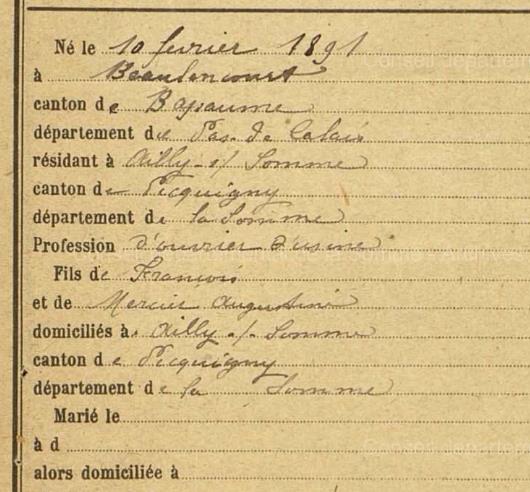 Né le 10 fevrier 1891
à Beaulencourt
canton de Bapaume
département du Pas de Calais
résidant à Ailly s/ Somme
canton de Picquigny
département de la Somme
Profession d'ouvrier d'usine
Fils de François
et de Mercier Augustine
domiciliés à Ailly s/ Somme
canton de Picquigny
département de la Somme
Marié le
à d
alors domiciliée à